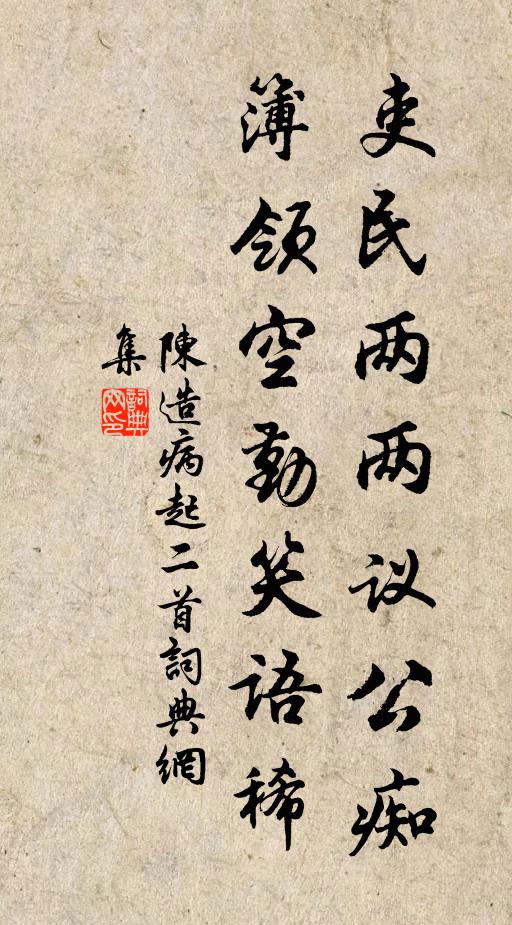 吏民两两议公痴
簿领空勤笑语稀
陳造病起二首詞典網
集
詞典
网印